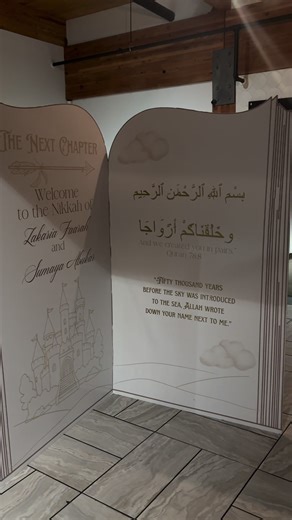 The Next Chapter
Welcome
to the Nikkah of
Zakaria
and
Sumaya
بِسْمِ ٱللَّٰهِ ٱلرَّحْمَٰنِ ٱلرَّحِيمِ
وَخَلَقْنَاكُمْ أَزْوَاجًا
"And we created you in pairs."
Quran 78:8
"Fifty thousand years
before the sky was introduced
to the sea, Allah wrote
down your name next to me."